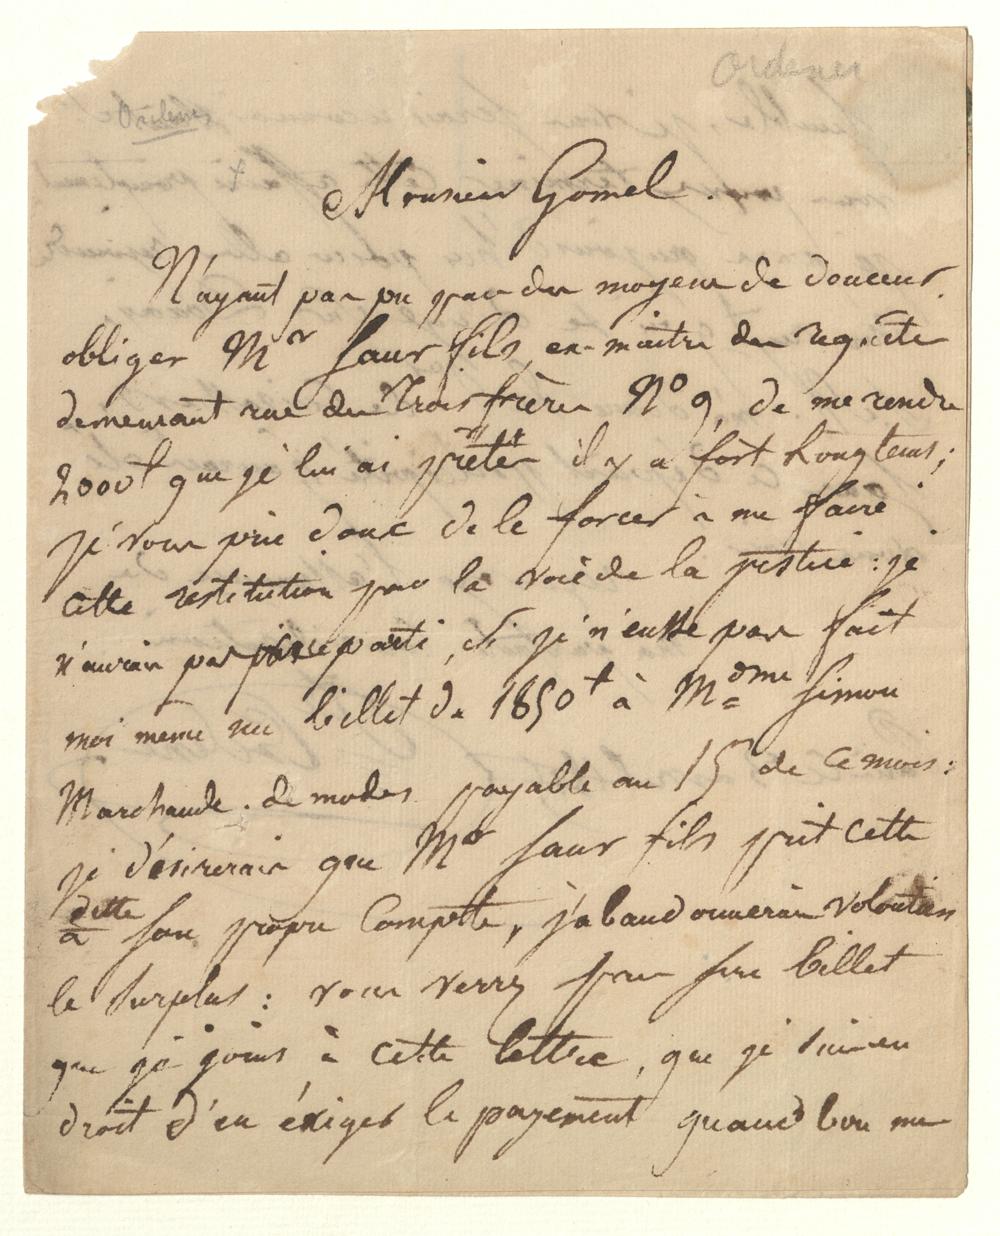 Ordener
Ordener
Monsieur Gomel.
N'ayant pas pu par des moyens de douceur
obliger Mr Saur fils, ex-maitre des requête
demeurant rue des Trois frères No 9, de me rendre
2000t que je lui ai prêtés il y a fort longtems;
je vous prie donc de le forcer à me faire
cette restitution par la voie de la justice: je
n'aurais pas pris ce parti, si je n'eusse pas fait
moi même un billet de 1850t à Mdme Simon
Marchande de modes payable au 15 de ce mois:
je désirerais que Mr Saur fils prit cette
dette
à son propre compte, j'abandonnerais volontiers
le surplus: vous verrez par son billet
que je joins à cette lettre, que je suis en
droit d'en éxiger le payement quand bon me